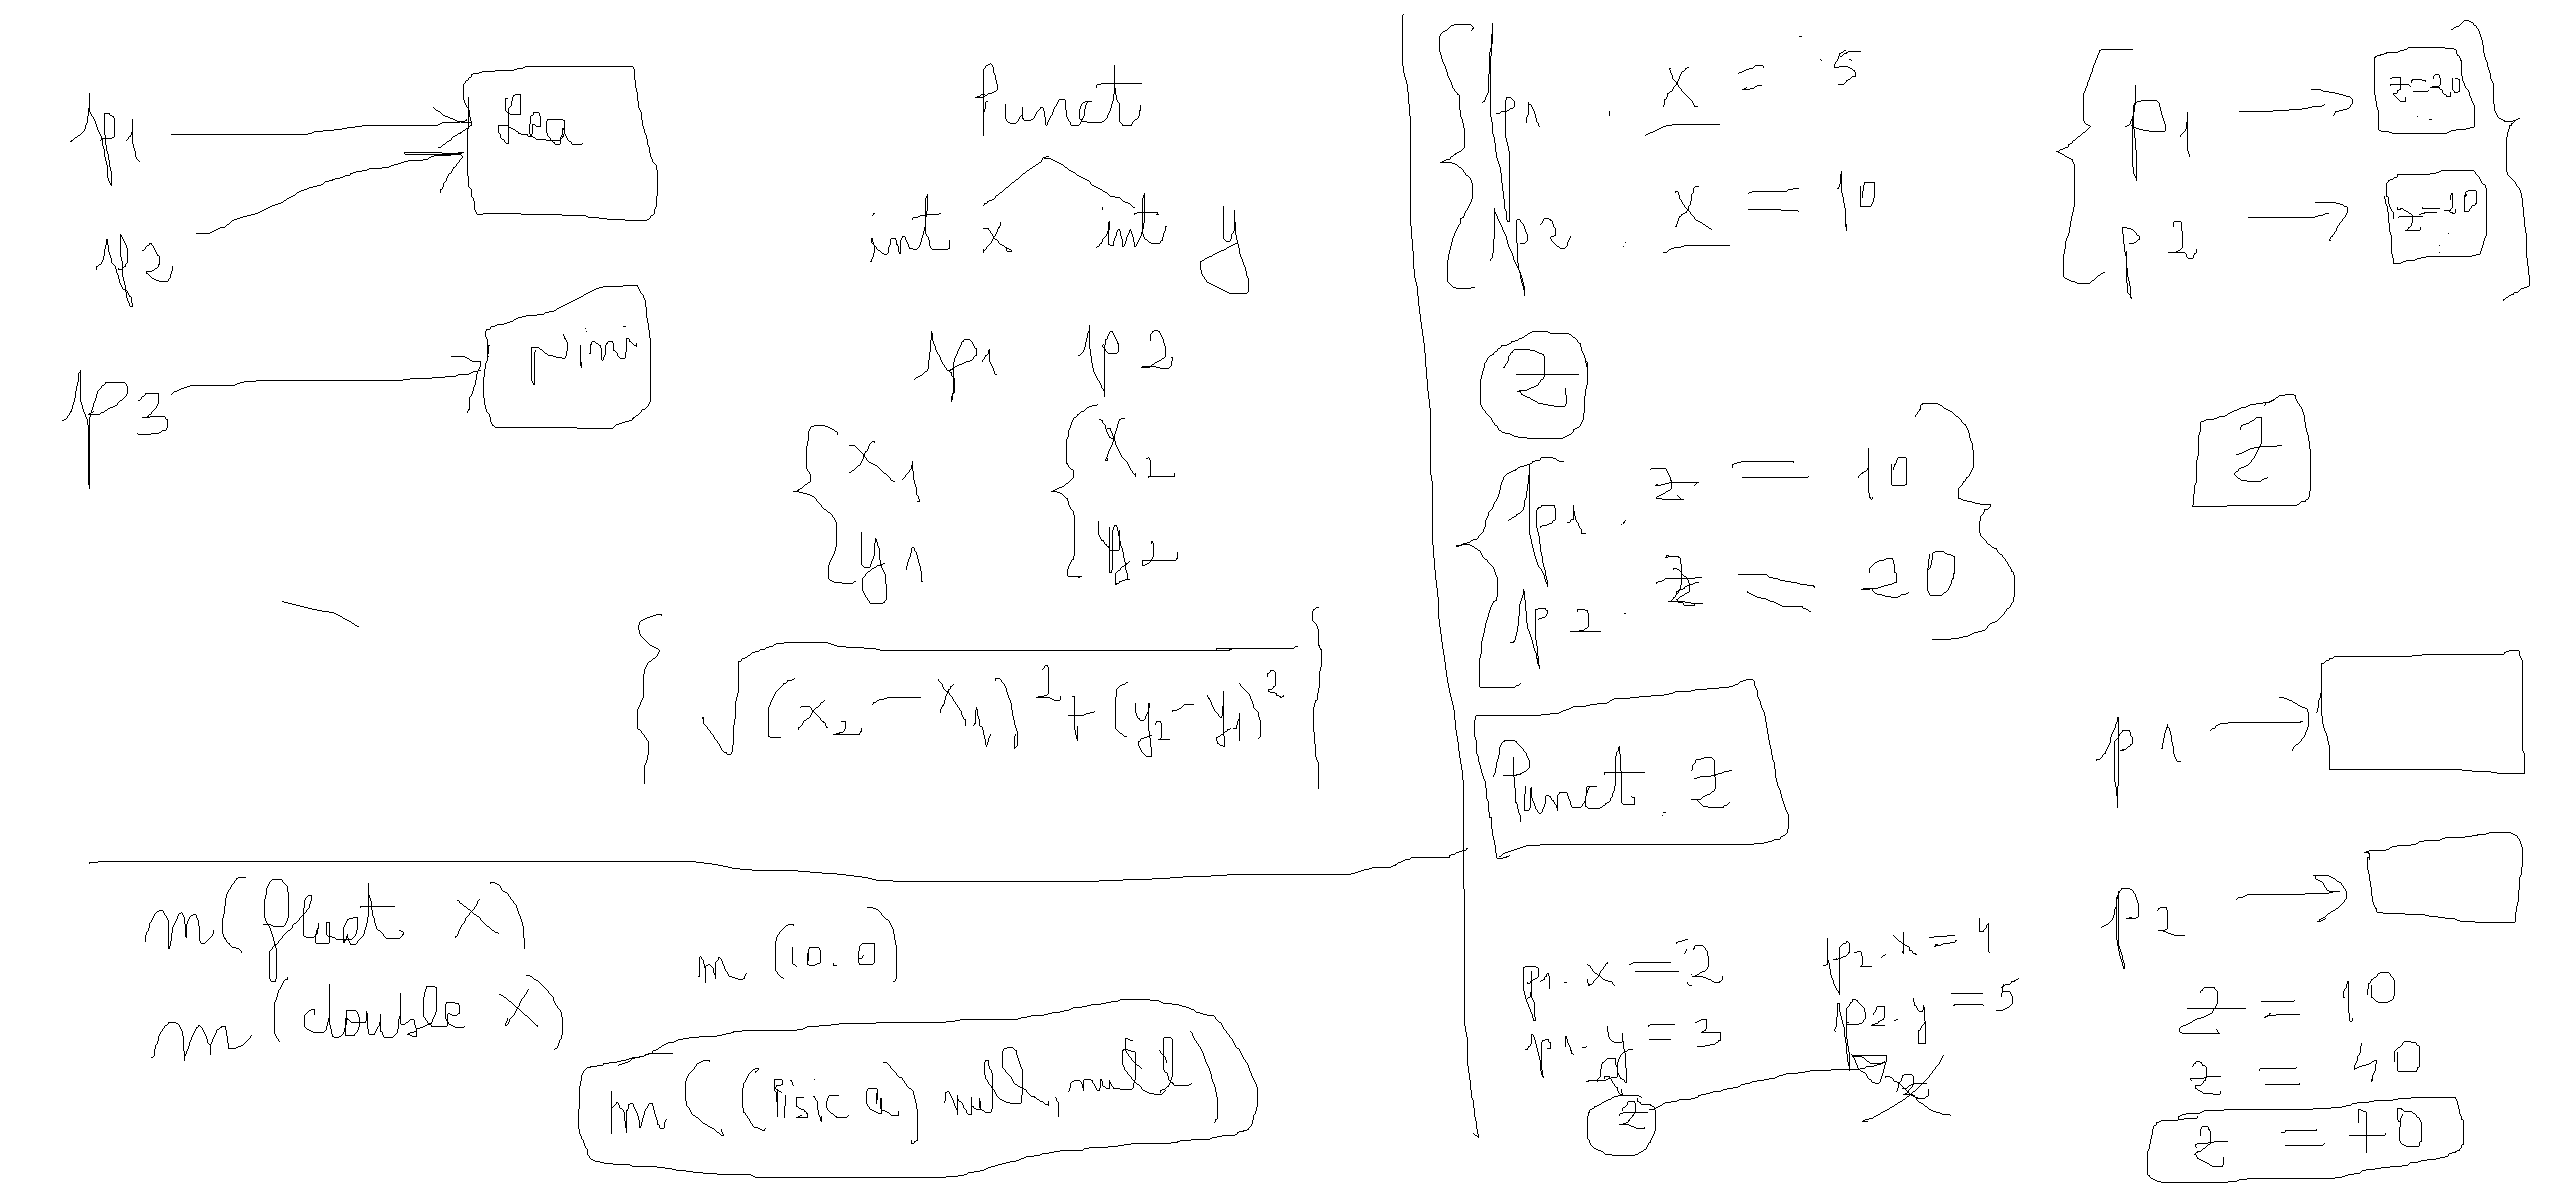 p1
Lea
p2
Nimi
p3
Punct
int x int y
p1 p2
x1 x2
y1 y2
√(x2 - x1)² + (y2 - y1)²
m(float x)
m(double x)
m(10.0)
m((Pisica) null, null)
p1 . x = 5
p2 . x = 10
z
p1 . z = 10
p2 . z = 20
Punct . z
p1. x = 2
p1. y = 3
z
p2. x = 4
p2. y = 5
z
p1 z=20
p2 z=20
z
p1
p2
z = 10
z = 40
z = 70